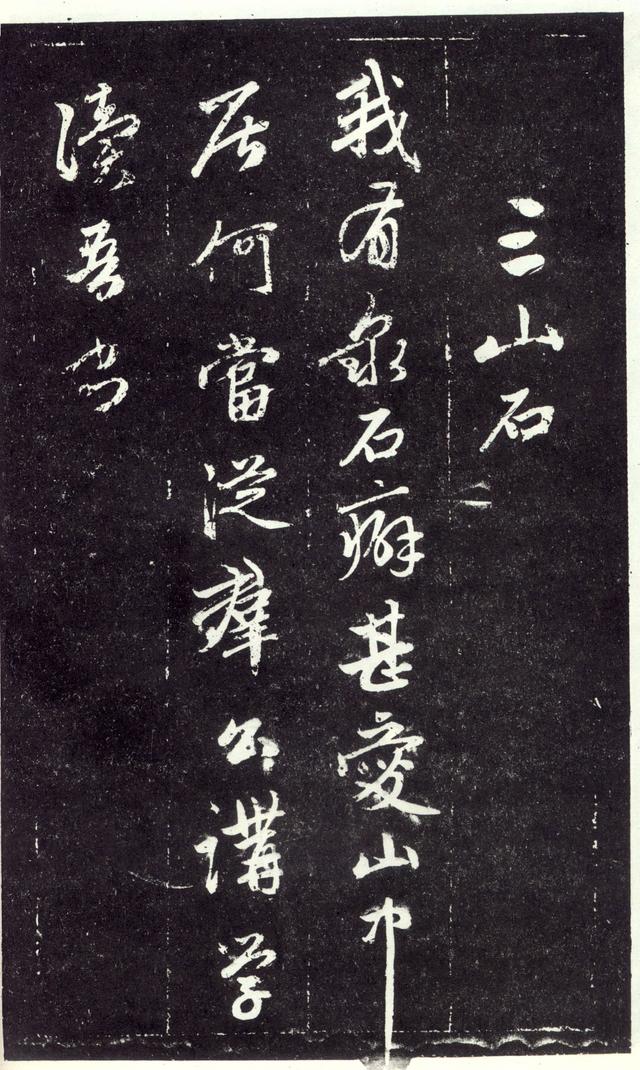 三山石
我有泉石癖甚愛山中
居何當從羣公講學
讀吾書